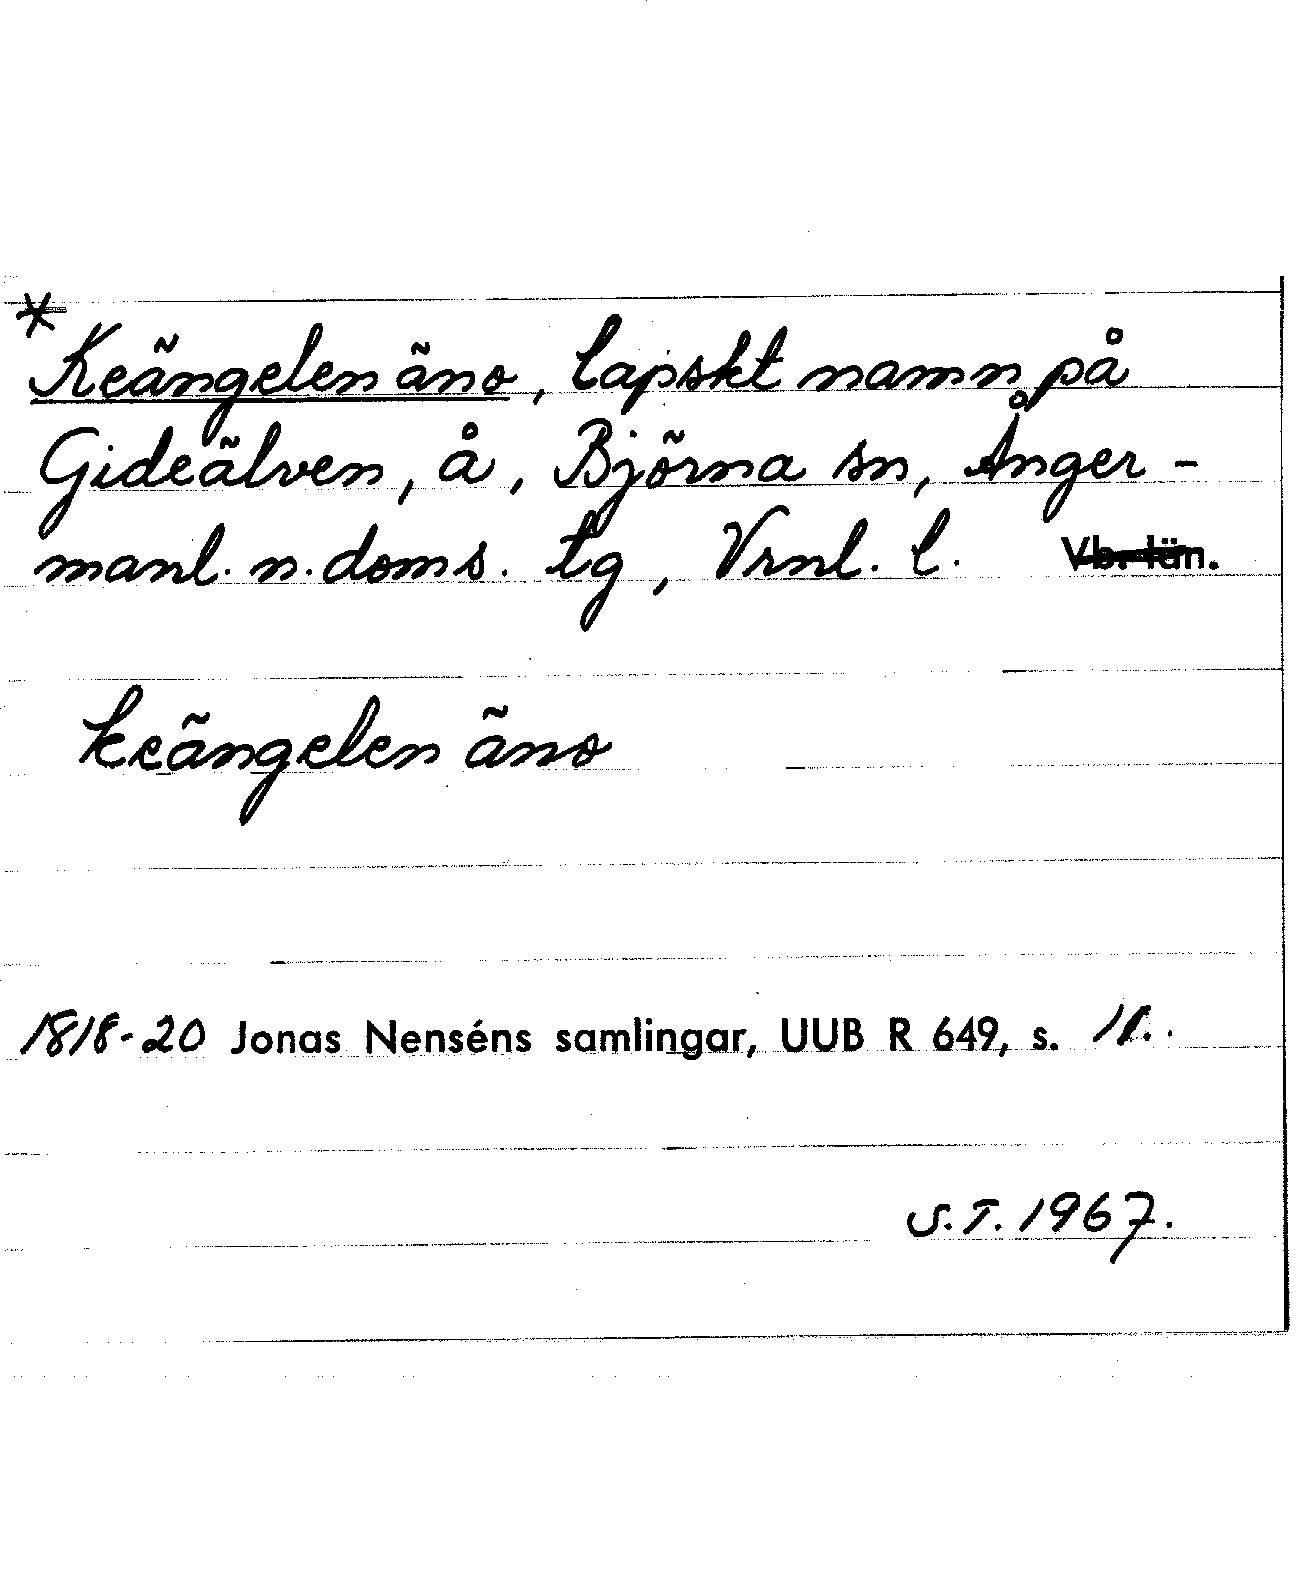 *
Keängelen äno, lapskt namn på
Gideälven, å, Björna sn, Ånger-
manl. n. doms. tg, Vrnl. l. Vb. län.
keängelen äno
1818-20 Jonas Nenséns samlingar, UUB R 649, s. 11.
S.T. 1967.